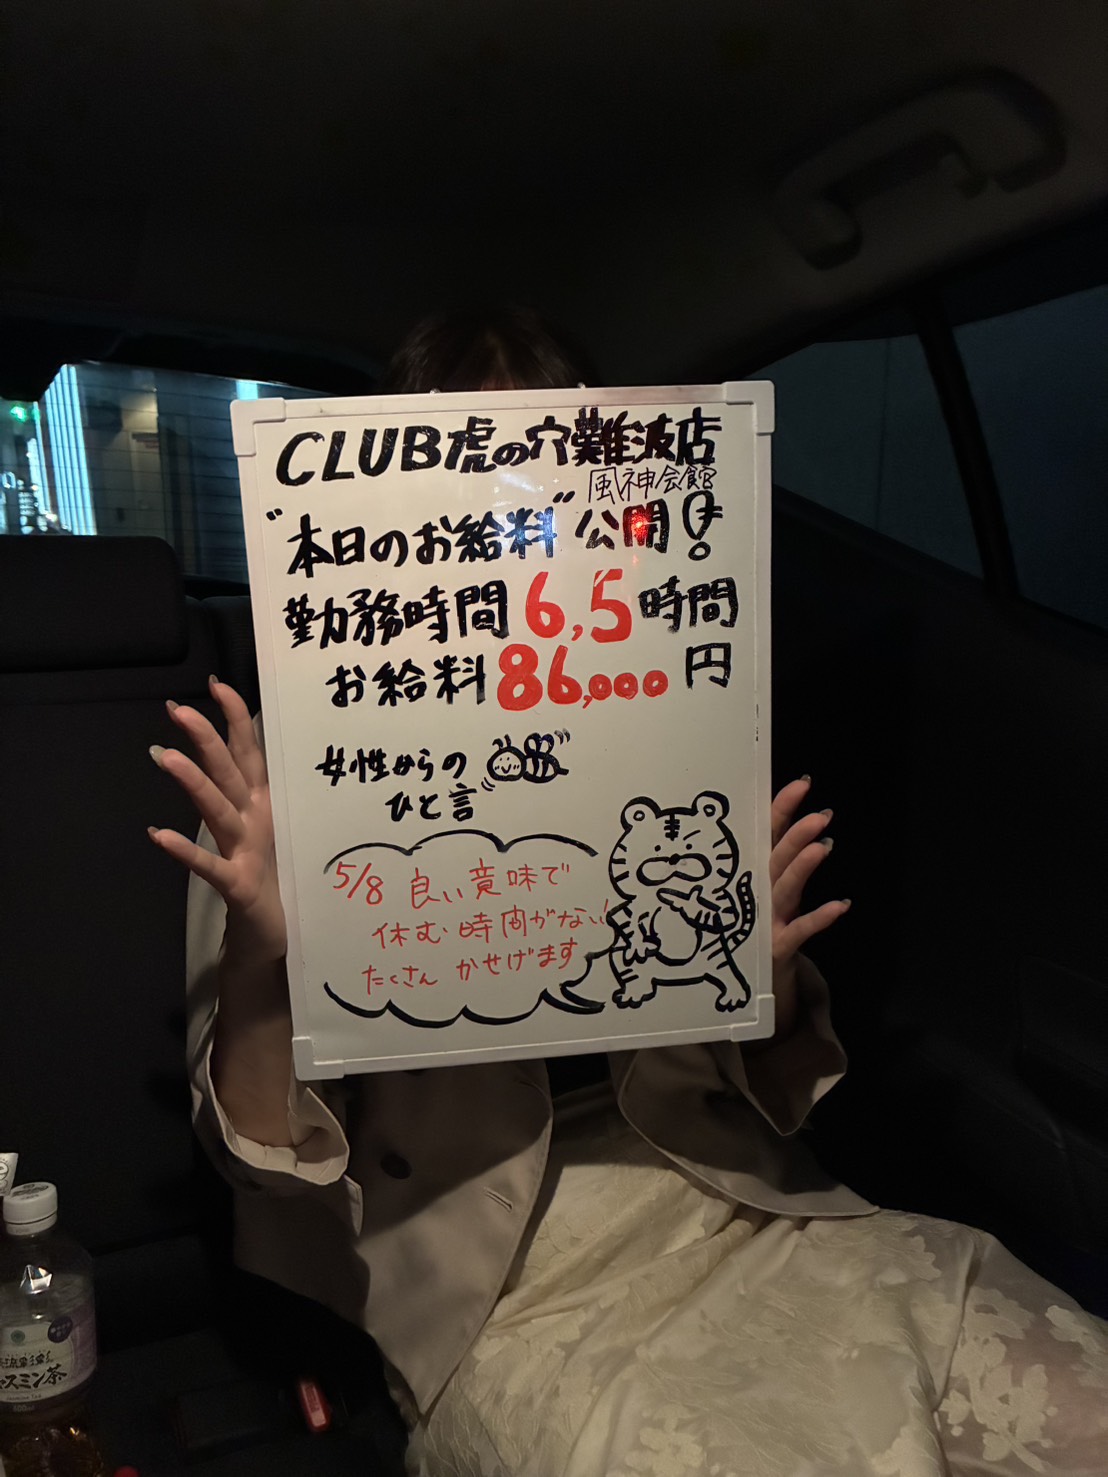 CLUB虎の穴難波店
風神会館
"本日のお給料"公開!
勤務時間6,5時間
お給料86,000円
女性からの
ひと言
5/8 良い意味で
休む時間がない!
たくさん かせげます
スミン茶